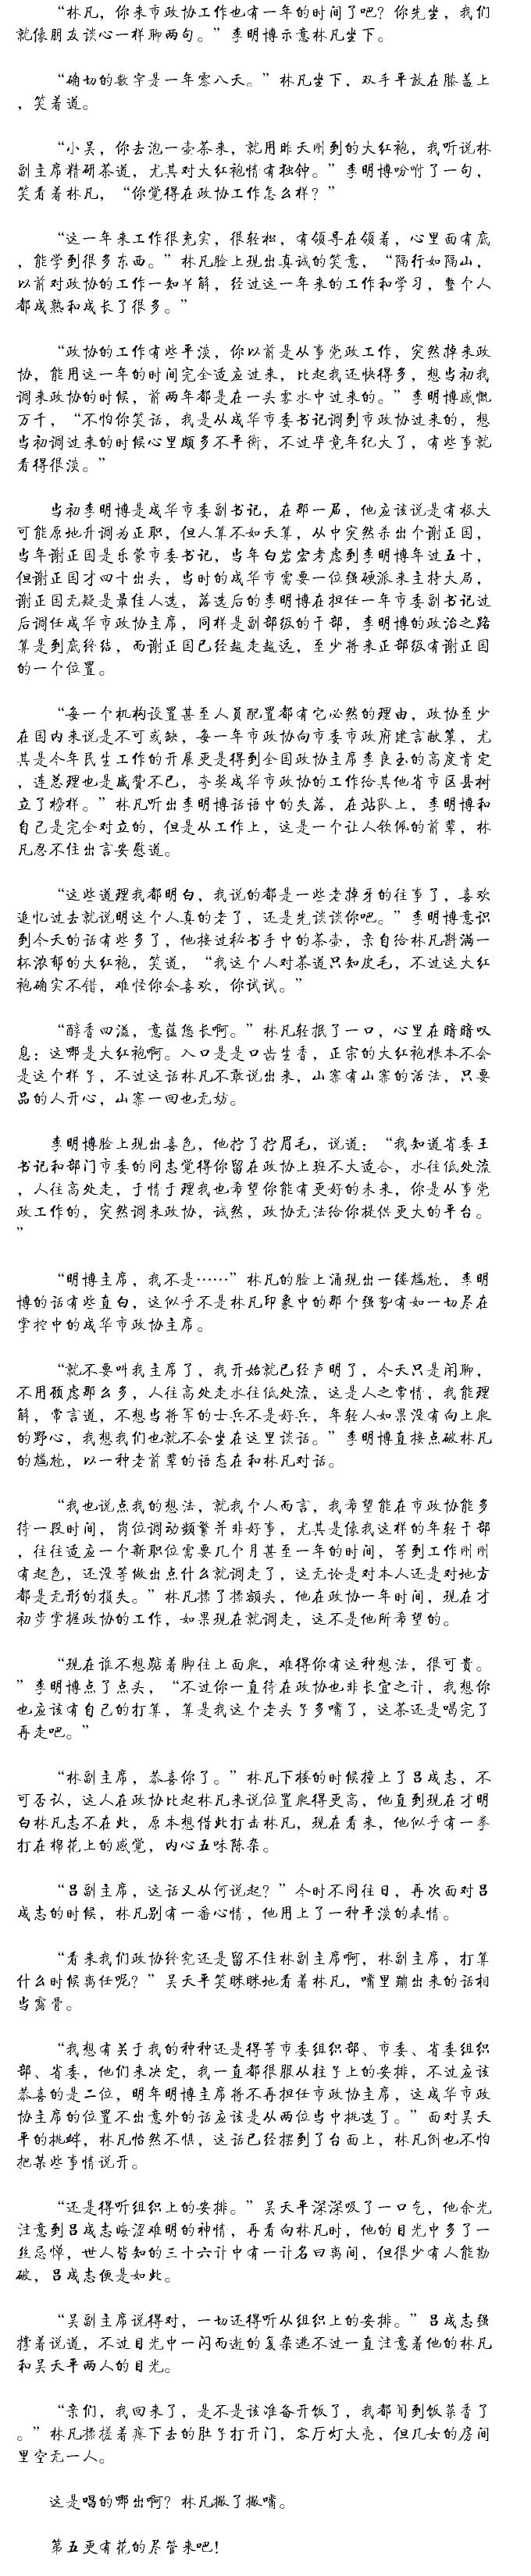 “林凡，你来市政协工作也有一年的时间了吧？你先坐，我们
就像朋友谈心一样聊两句。”李明博示意林凡坐下。
“确切的数字是一年零八天。”林凡坐下，双手平放在膝盖上
，笑着道。
“小吴，你去泡一壶茶来，就用昨天刚到的大红袍，我听说林
副主席精研茶道，尤其对大红袍情有独钟。”李明博吩咐了一句，
笑看着林凡，“你觉得在政协工作怎么样？”
“这一年来工作很充实，很轻松，有领导在领着，心里面有底
，能学到很多东西。”林凡脸上现出真诚的笑意，“隔行如隔山，
以前对政协的工作一知半解，经过这一年来的工作和学习，整个人
都成熟和成长了很多。”
“政协的工作有些平淡，你以前是从事党政工作，突然掉来政
协，能用这一年的时间完全适应过来，比起我还快得多，想当初我
调来政协的时候，前两年都是在一头雾水中过来的。”李明博感慨
万千，“不怕你笑话，我是从成华市委书记调到市政协过来的，想
当初调过来的时候心里颇多不平衡，不过毕竟年纪大了，有些事就
看得很淡。”
当初李明博是成华市委副书记，在那一届，他应该说是有极大
可能原地升调为正职，但人算不如天算，从中突然杀出个谢正国，
当年谢正国是乐蒙市委书记，当年白岩宏考虑到李明博年过五十，
但谢正国才四十出头，当时的成华市需要一位强硬派来主持大局，
谢正国无疑是最佳人选，落选后的李明博在担任一年市委副书记过
后调任成华市政协主席，同样是副部级的干部，李明博的政治之路
算是到底终结，而谢正国已经越走越远，至少将来正部级有谢正国
的一个位置。
“每一个机构设置甚至人员配置都有它必然的理由，政协至少
在国内来说是不可或缺，每一年市政协向市委市政府建言献策，尤
其是今年民生工作的开展更是得到全国政协主席李良玉的高度肯定
，连总理也是盛赞不已，夸奖成华市政协的工作给其他省市区县树
立了榜样。”林凡听出李明博话语中的失落，在站队上，李明博和
自己是完全对立的，但是从工作上，这是一个让人钦佩的前辈，林
凡忍不住出言安慰道。
“这些道理我都明白，我说的都是一些老掉牙的往事了，喜欢
追忆过去就说明这个人真的老了，还是先谈谈你吧。”李明博意识
到今天的话有些多了，他接过秘书手中的茶壶，亲自给林凡斟满一
杯浓郁的大红袍，笑道，“我这个人对茶道只知皮毛，不过这大红
袍确实不错，难怪你会喜欢，你试试。”
“醇香四溢，意蕴悠长啊。”林凡轻抿了一口，心里在暗暗叹
息：这哪是大红袍啊。入口是是口齿生香，正宗的大红袍根本不会
是这个样子，不过这话林凡不敢说出来，山寨有山寨的活法，只要
品的人开心，山寨一回也无妨。
李明博脸上现出喜色，他拧了拧眉毛，说道：“我知道省委王
书记和部门市委的同志觉得你留在政协上班不大适合，水往低处流
，人往高处走，于情于理我也希望你能有更好的未来，你是从事党
政工作的，突然调来政协，诚然，政协无法给你提供更大的平台。
”
“明博主席，我不是……”林凡的脸上涌现出一缕尴尬，李明
博的话有些直白，这似乎不是林凡印象中的那个强势有如一切尽在
掌控中的成华市政协主席。
“就不要叫我主席了，我开始就已经声明了，今天只是闲聊，
不用顾虑那么多，人往高处走水往低处流，这是人之常情，我能理
解，常言道，不想当将军的士兵不是好兵，年轻人如果没有向上爬
的野心，我想我们也就不会坐在这里谈话。”李明博直接点破林凡
的尴尬，以一种老前辈的语态在和林凡对话。
“我也说点我的想法，就我个人而言，我希望能在市政协能多
待一段时间，岗位调动频繁并非好事，尤其是像我这样的年轻干部
，往往适应一个新职位需要几个月甚至一年的时间，等到工作刚刚
有起色，还没等做出点什么就调走了，这无论是对本人还是对地方
都是无形的损失。”林凡揉了揉额头，他在政协一年时间，现在才
初步掌握政协的工作，如果现在就调走，这不是他所希望的。
“现在谁不想踮着脚往上面爬，难得你有这种想法，很可贵。
”李明博点了点头，“不过你一直待在政协也非长宜之计，我想你
也应该有自己的打算，算是我这个老头子多嘴了，这茶还是喝完了
再走吧。”
“林副主席，恭喜你了。”林凡下楼的时候撞上了吕成志，不
可否认，这人在政协比起林凡来说位置爬得更高，他直到现在才明
白林凡志不在此，原本想借此打击林凡，现在看来，他似乎有一拳
打在棉花上的感觉，内心五味陈杂。
“吕副主席，这话又从何说起？”今时不同往日，再次面对吕
成志的时候，林凡别有一番心情，他用上了一种平淡的表情。
“看来我们政协终究还是留不住林副主席啊，林副主席，打算
什么时候离任呢？”吴天平笑眯眯地看着林凡，嘴里蹦出来的话相
当露骨。
“我想有关于我的种种还是得等市委组织部、市委、省委组织
部、省委，他们来决定，我一直都很服从柱子上的安排，不过应该
恭喜的是二位，明年明博主席将不再担任市政协主席，这成华市政
协主席的位置不出意外的话应该是从两位当中挑选了。”面对吴天
平的挑衅，林凡怡然不惧，这话已经摆到了台面上，林凡倒也不怕
把某些事情说开。
“还是得听组织上的安排。”吴天平深深吸了一口气，他余光
注意到吕成志晦涩难明的神情，再看向林凡时，他的目光中多了一
丝忌惮，世人皆知的三十六计中有一计名曰离间，但很少有人能勘
破，吕成志便是如此。
“吴副主席说得对，一切还得听从组织上的安排。”吕成志强
撑着说道，不过目光中一闪而逝的复杂逃不过一直注意着他的林凡
和吴天平两人的目光。
“亲们，我回来了，是不是该准备开饭了，我都闻到饭菜香了
。”林凡揉搓着瘪下去的肚子打开门，客厅灯大亮，但几女的房间
里空无一人。
这是唱的哪出啊？林凡撇了撇嘴。
第五更有花的尽管来吧！